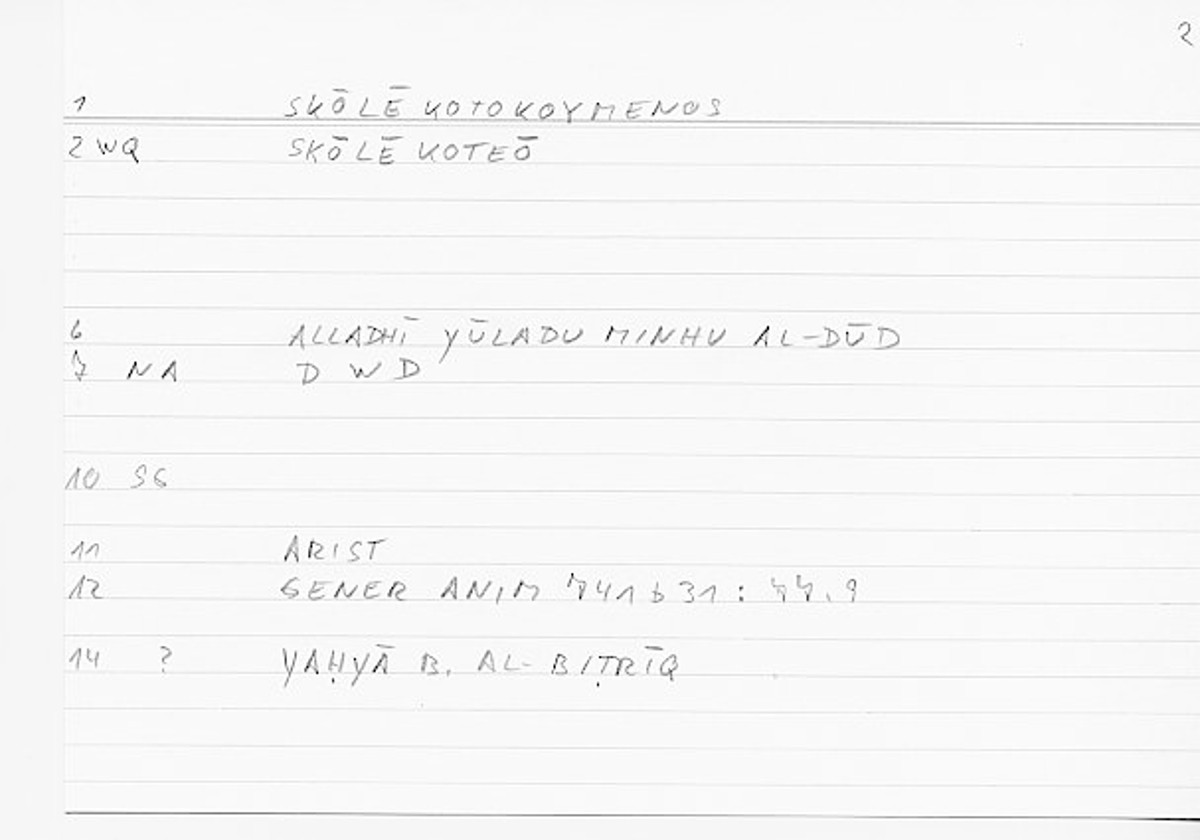 2
1 SKŌLĒ KOTOKOYMENOS
2 WQ SKŌLĒ KOTEŌ
6 ALLADHĪ YŪLADU MINHU AL-DŪD
7 NA D W D
10 SG
11 ARIST
12 GENER ANIM 741 b 31 : 77.9
14 ? YAḤYĀ B. AL-BIṬRĪQ